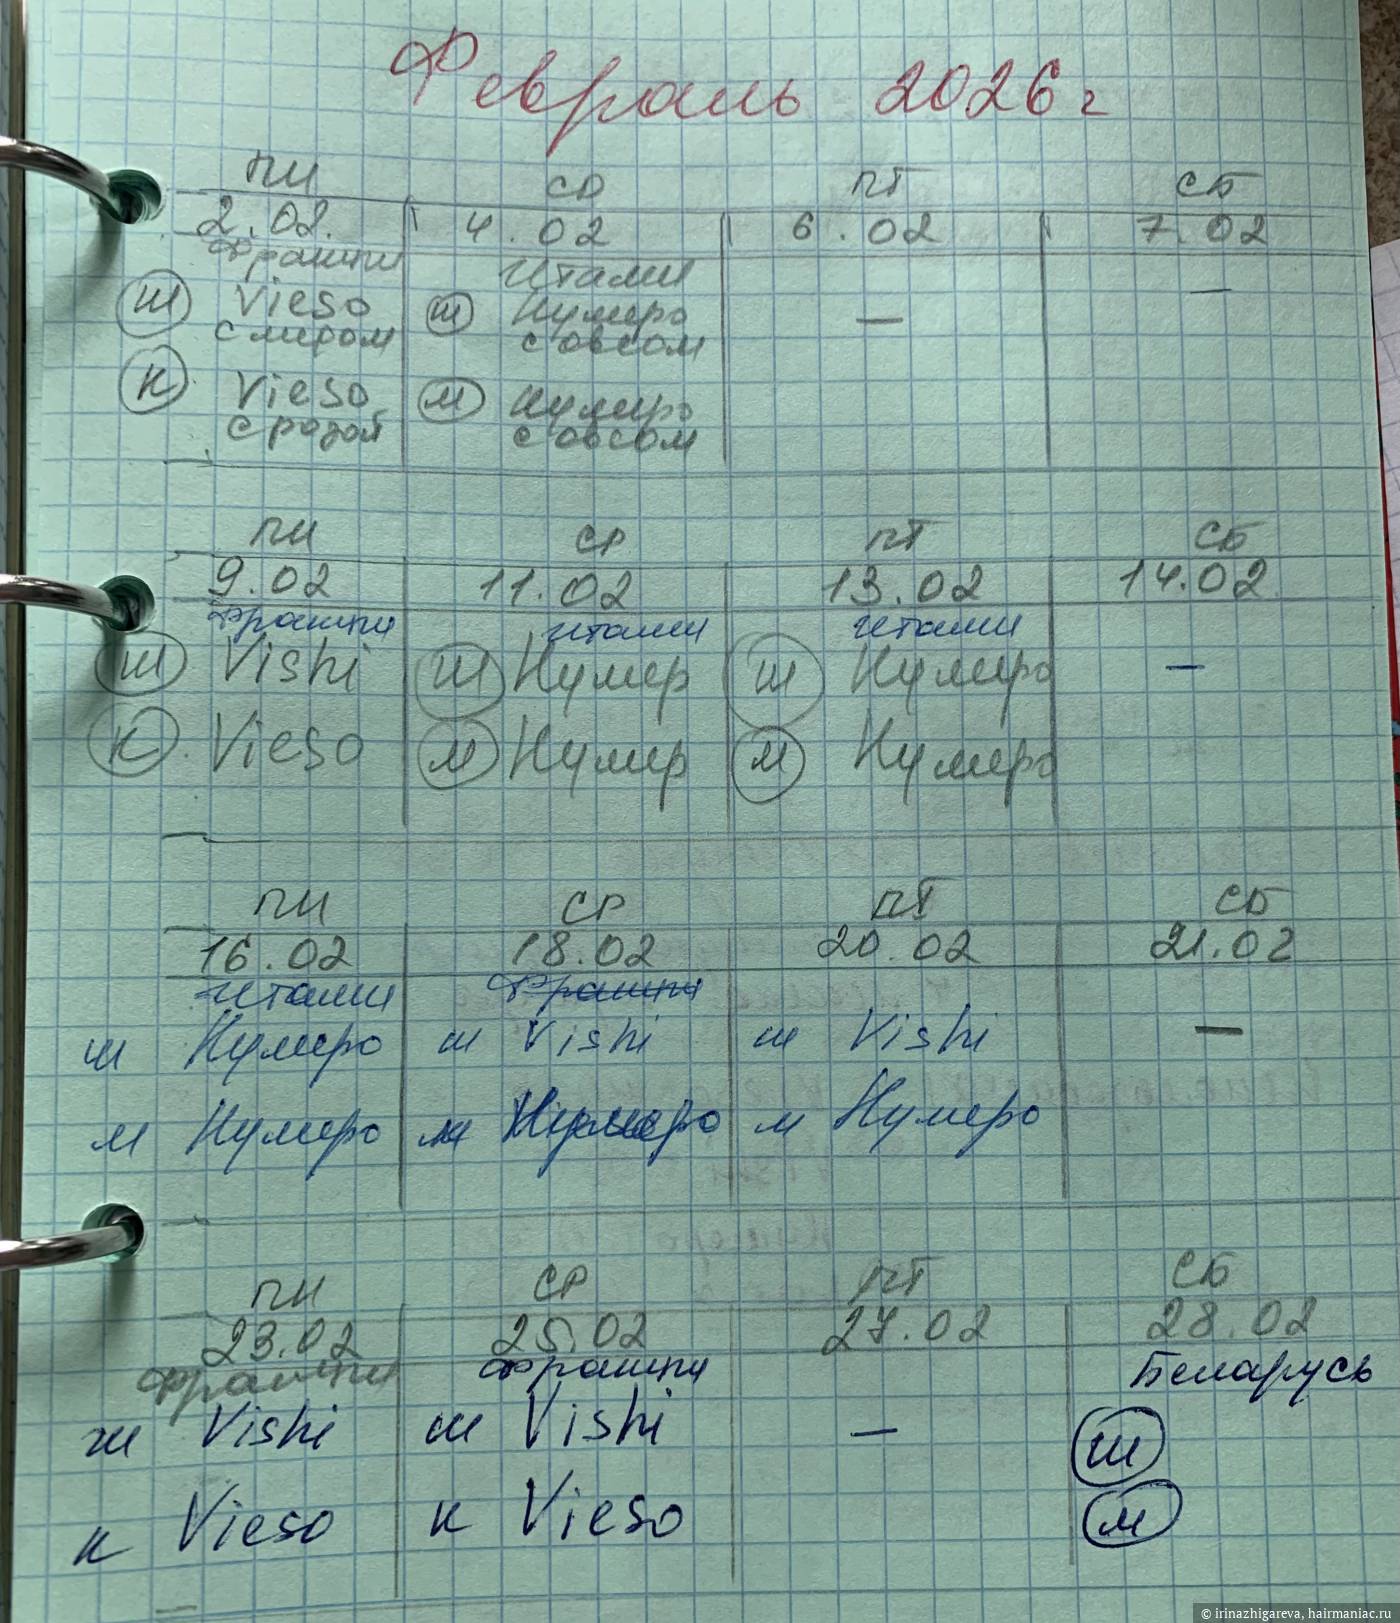 Февраль 2026 г
ПН СР ПТ СБ
2.02. 4.02 6.02 7.02
Франция Италия
Ш Vieso Ш Нумеро — —
с миром с овсом
К Vieso М Нумеро
с розой с овсом
ПН СР ПТ СБ
9.02 11.02 13.02 14.02
Франция Италия Италия
Ш Vishi Ш Нумер Ш Нумеро —
К Vieso М Нумер М Нумеро
ПН СР ПТ СБ
16.02 18.02 20.02 21.02
Италия Франция
ш Нумеро ш Vishi ш Vishi —
м Нумеро м Нумеро м Нумеро
ПН СР ПТ СБ
23.02 25.02 27.02 28.02
Франция Франция Беларусь
ш Vishi ш Vishi — Ш
к Vieso к Vieso М
© irinazhigareva, hairmaniac.ru